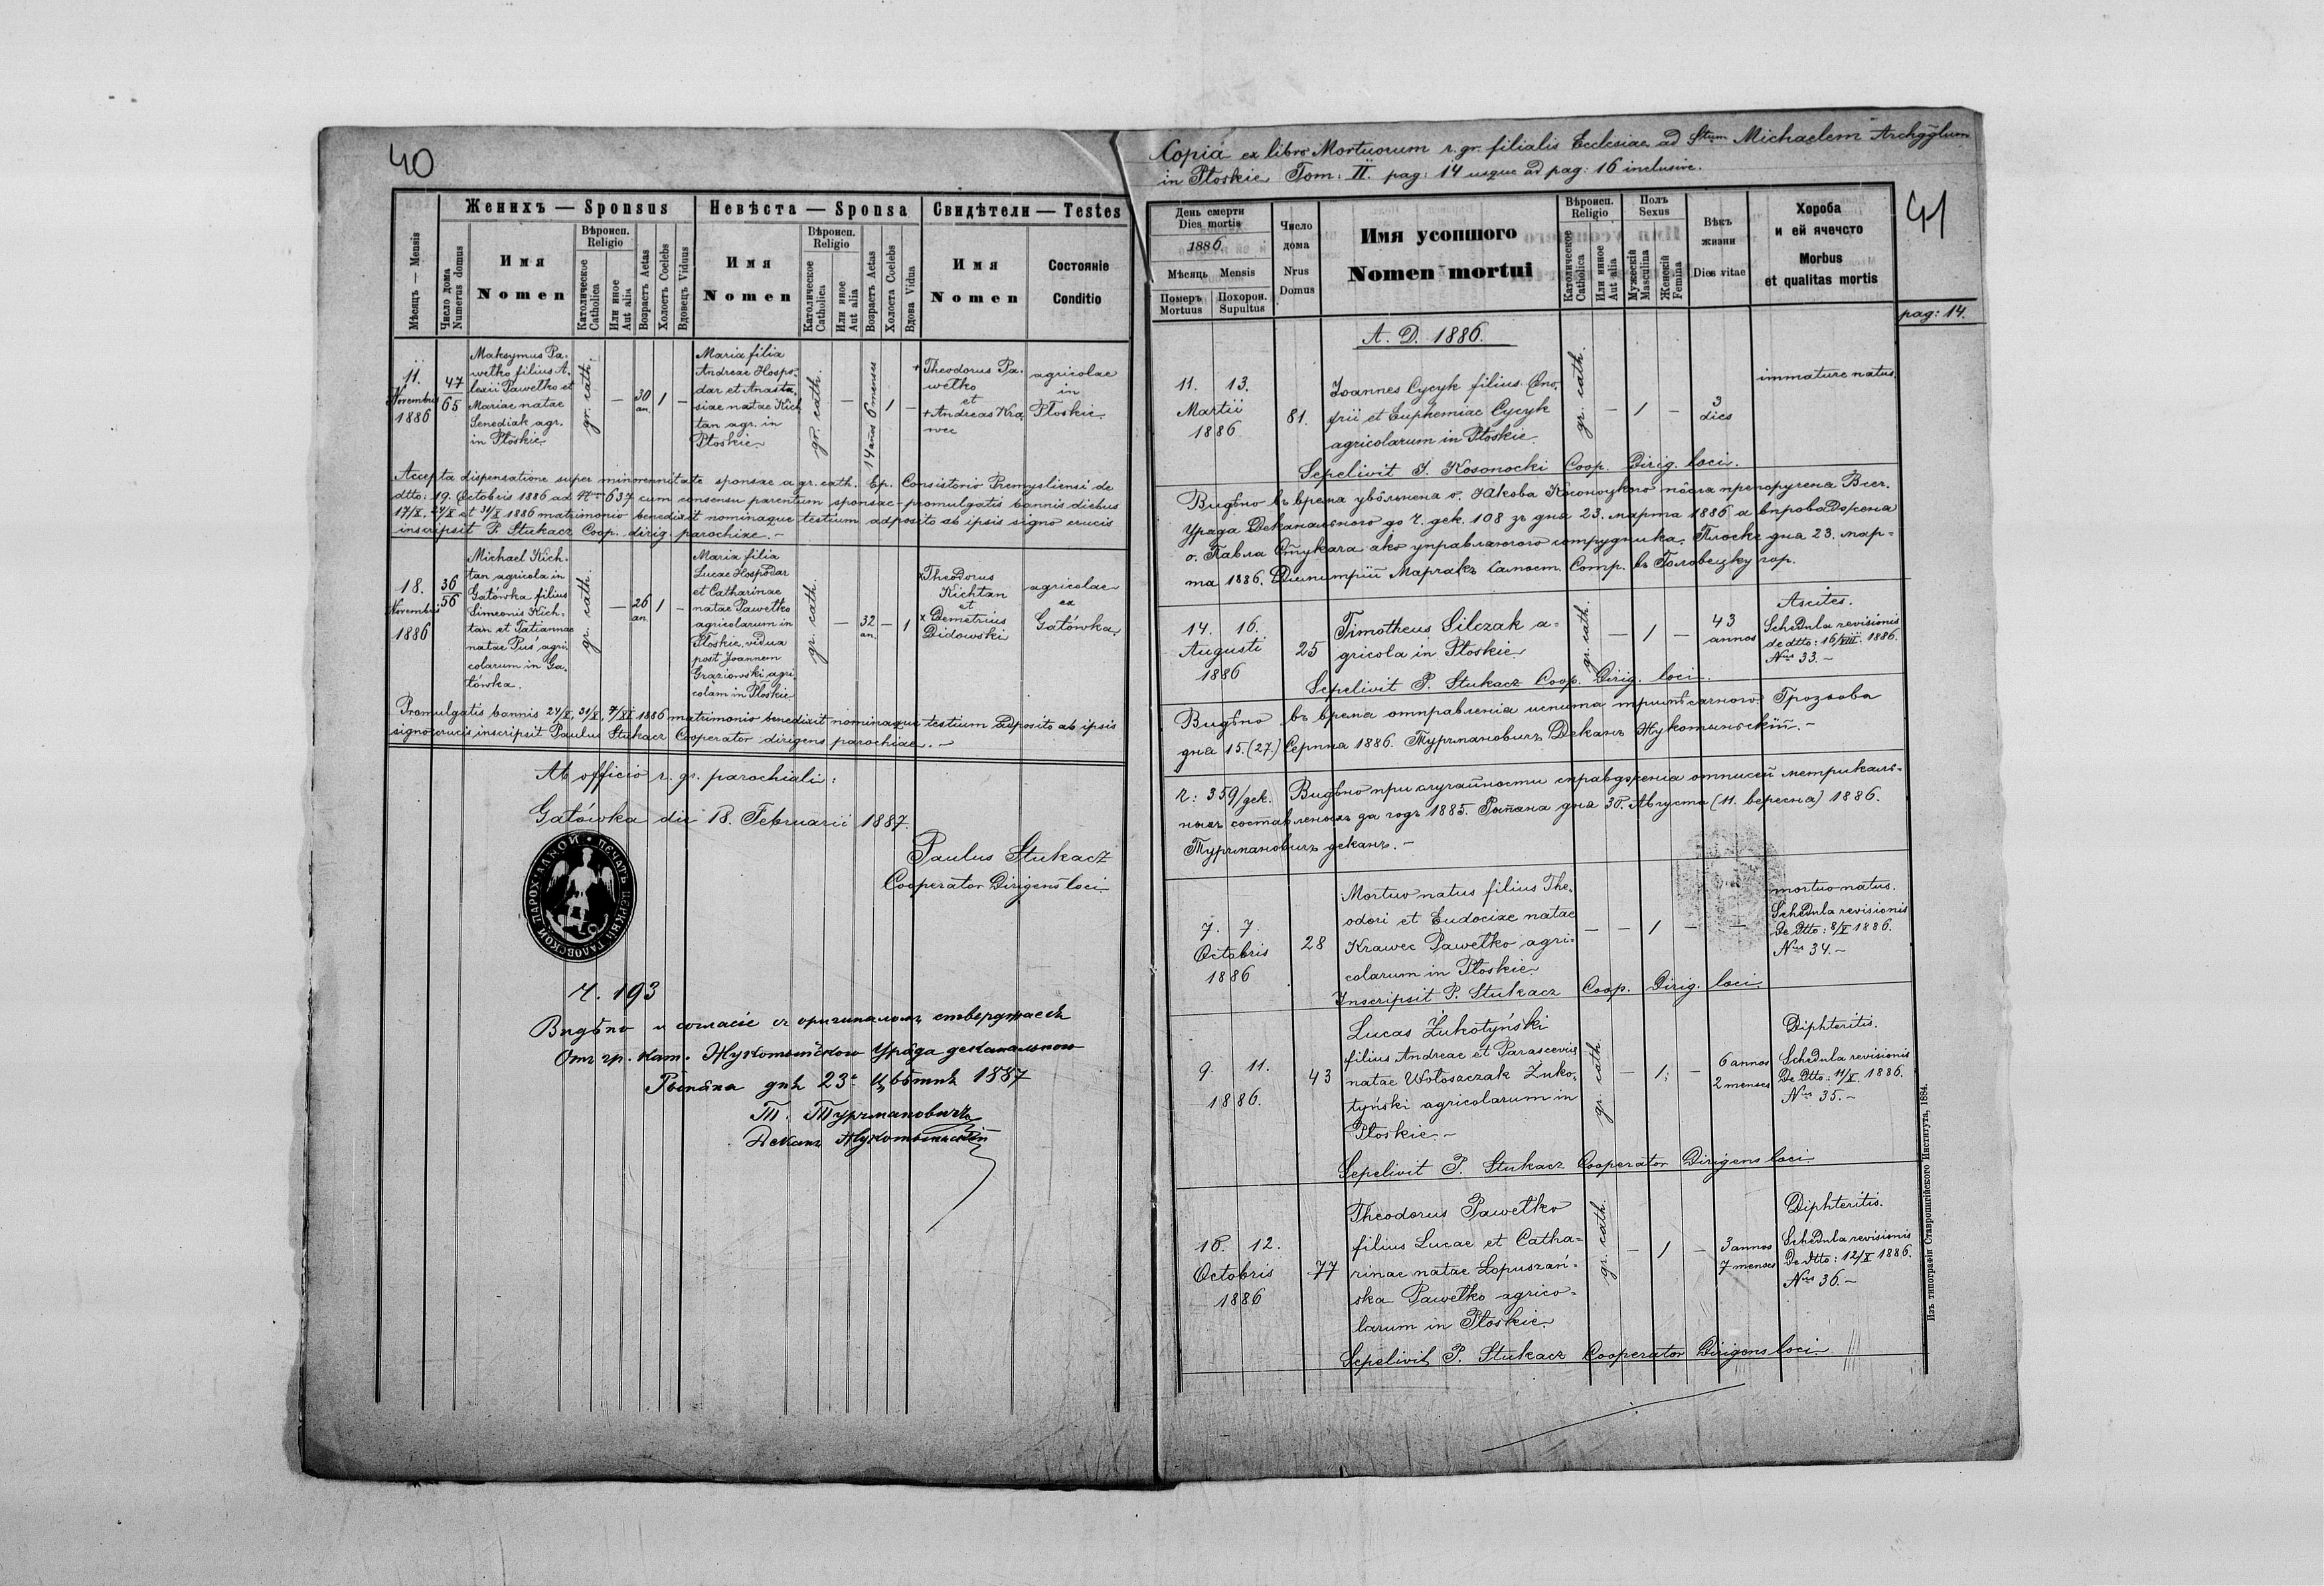 40
Женихъ — Sponsus
Невѣста — Sponsa
Свидѣтели — Testes
Мѣсяцъ — Mensis
Число дома
Numerus domus
Имя
Nomen
Вѣроисп.
Religio
Католическое
Catholica
Или иное
Aut alia
Возрастъ Aetas
Холостъ Coelebs
Вдовецъ Viduus
Имя
Nomen
Вѣроисп.
Religio
Католическое
Catholica
Или иное
Aut alia
Возрастъ Aetas
Холоста Coelebs
Вдова Vidua
Имя
Nomen
Состояніе
Conditio
11.
Novembris
1886
47
65
Maksymus Pa-
wełko filius A-
lexii Pawełko et
Mariae natae
Senediak agr.
in Płoskie
gr. cath.
—
30
an.
1
—
Maria filia
Andreae Hospo-
dar et Anasta-
siae natae Kich
tan agr. in
Płoskie
gr. cath.
—
14 años 6 menses
1
—
+ Theodorus Pa-
wełko
et
+ Andreas Kra-
wec
agricolae
in
Płoskie
Accepta dispensatione super minorennitate sponsae a gr. cath. Ep. Consistorio Premysliensi de
dtto: 19. Octobris 1886 ad Nrum 637 cum consensu parentum sponsae - promulgatis bannis diebus
17/X, 24/X et 31/X 1886 matrimonio benedixit nominaque testium adposito ab ipsis signo crucis
inscripsit P. Stukacz Coop. dirig. parochiae. —
18.
Novembris
1886
36
56
Michael Kich-
tan agricola in
Gałówka filius
Simeonis Kich-
tan et Tatiannae
natae Puś agri-
colarum in Ga-
łówka.
gr. cath.
—
26
an.
1
—
Maria filia
Lucae Hospodar
et Catharinae
natae Pawełko
agricolarum in
Płoskie, vidua
post Joannem
Graziowski agri-
colam in Płoskie
gr. cath.
—
32
an.
—
1
x Theodorus
Kichtan
et
x Demetrius
Didowski
agricolae
ex
Gałówka.
Promulgatis bannis 24/X, 31/X, 7/XI 1886 matrimonio benedixit nominaque testium adposito ab ipsis
signo crucis inscripsit Paulus Stukacz Cooperator dirigens parochiae. —
Ab officio r. gr. parochiali:
Gałówka die 18. Februarii 1887.
Paulus Stukacz
Cooperator Dirigens loci
ПЕЧАТЬ ЦЕРКВИ ГАЛОВСКОЙ ПАРОХІАЛНОЙ
Ч. 193
Видѣно и согласіе съ оригиналомъ стверджаесь
Отъ гр. кат. Жукотыньского Уряда деканального
Рыпяна дня 23. Цвѣтня 1887
Т. Турчмановичъ
Деканъ Жукотыньскій
Copia ex libro Mortuorum r. gr. filialis Ecclesiae ad Stum Michaelem Archgglum
in Płoskie Tom: II. pag: 14 usque ad pag: 16 inclusive.
41
День смерти
Dies mortis
1886
Мѣсяць Mensis
Померъ
Mortuus
Похорон.
Supultus
Число
дома
Nrus
Domus
Имя усопшого
Nomen mortui
Вѣроисп.
Religio
Католическое
Catholica
Или иное
Aut alia
Полъ
Sexus
Мужескій
Masculina
Женскій
Femina
Вѣкъ
жизни
Dies vitae
Хороба
и ей ячечсто
Morbus
et qualitas mortis
pag: 14.
A. D. 1886.
11. 13.
Martii
1886
81.
Joannes Cycyk filius Ono-
frii et Euphemiae Cycyk
agricolarum in Płoskie
gr. cath.
—
1
—
3
dies
immature natus.
Sepelivit J. Kosonocki Coop. Dirig. loci.
Видѣно въ время увôльнена о. Якова Косоноцкого пôсля препоручена Всеч.
Уряда Деканального до ч. дек. 108 зъ дня 23. марта 1886 а впровадженя
о. Павла Стукача яко управляющого сотрудника. Плоске дня 23. мар-
та 1886. Димитрій Марчакъ самост. Сотр. въ Головецку гор.
14. 16.
Augusti
1886
25
Timotheus Silczak a-
gricola in Płoskie
gr. cath.
—
1
—
43
annos
Ascites.
Schedula revisionis
de dtto: 16/VIII 1886.
Nrus 33. —
Sepelivit P. Stukacz Coop. Dirig. loci.
Видѣно въ время отправленія испита тримѣсячного. Грозьова
дня 15. (27.) Серпня 1886. Турчмановичъ Деканъ Жукотыньскій. —
ч: 359/дек. Видѣно при случайности справдженія отписей метрикаль-
ныхъ составленыхъ за годъ 1885. Рыпяна дня 30. Августа (11. вересня) 1886.
Турчмановичъ деканъ. —
7. 7.
Octobris
1886
28
Mortuo natus filius The-
odori et Eudociae natae
Krawec Pawełko agri-
colarum in Płoskie
—
—
1
—
—
mortuo natus.
Schedula revisionis
de dtto: 8/X 1886.
Nrus 34. —
Inscripsit P. Stukacz Coop. Dirig. loci.
9. 11.
1886.
43
Lucas Żukotyński
filius Andreae et Parasceviae
natae Wołosaczak Żuko-
tyński agricolarum in
Płoskie. —
gr. cath.
—
1.
—
6 annos
2 menses
Diphteritis.
Schedula revisionis
De Dtto: 11/X. 1886.
Nrus 35. —
Sepelivit P. Stukacz Cooperator Dirigens loci.
10. 12.
Octobris
1886
77
Theodorus Pawełko
filius Lucae et Catha-
rinae natae Łopuszań-
ska Pawełko agrico-
larum in Płoskie.
gr. cath.
—
1
—
3 annos
7 menses
Diphteritis.
Schedula revisionis
De dtto: 12/X 1886.
Nrus 36. —
Sepelivit P. Stukacz Cooperator Dirigens loci.
Изъ типографіи Ставропигійского Института, 1884.